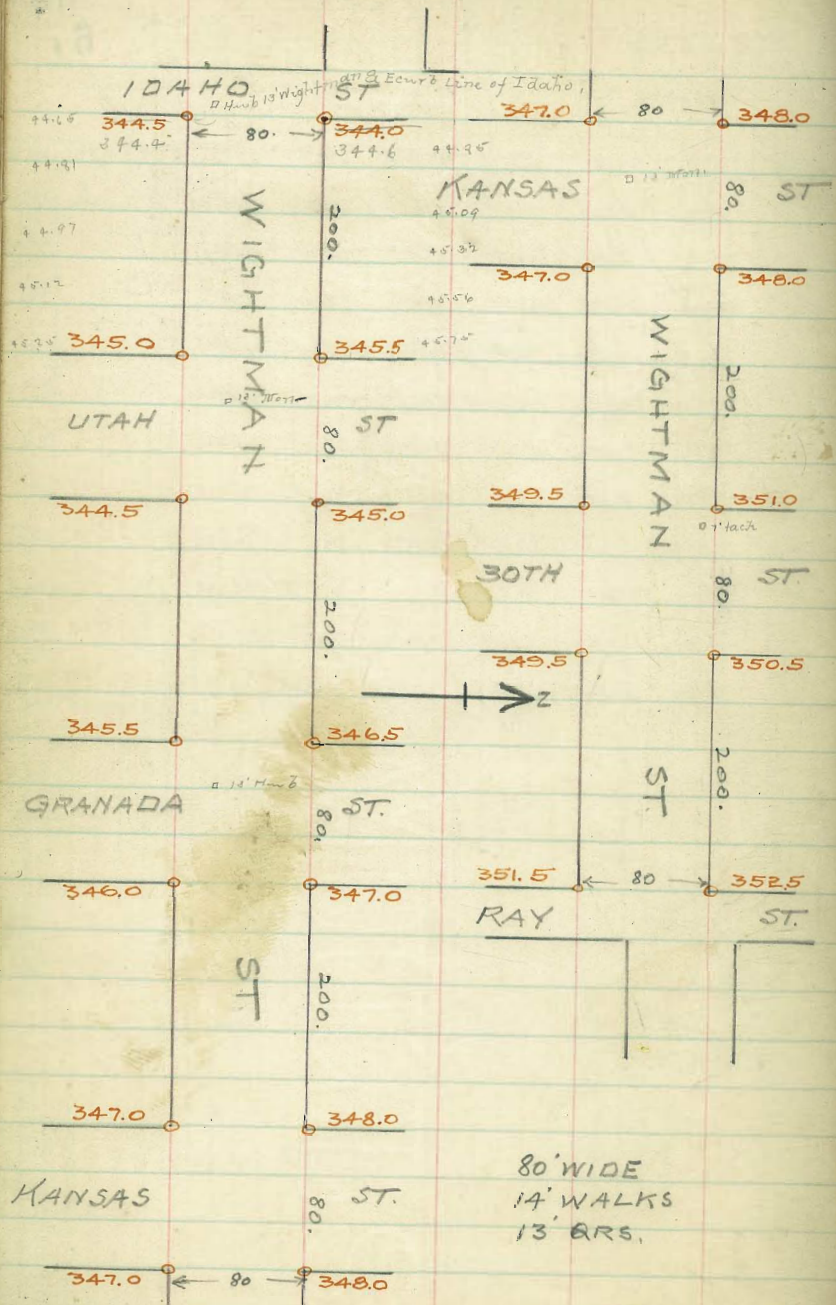 IDAHO ST
Hub 13' Wightman & E curb Line of Idaho,
44.65 344.5 80. 344.0
344.4 344.6
44.81
WIGHTMAN
200.
44.97
45.12
45.25 345.0 345.5
13' Mon
UTAH ST
80.
344.5 345.0
200.
345.5 346.5
13' Hub
GRANADA ST.
80.
346.0 347.0
ST
200.
347.0 348.0
KANSAS ST.
80.
347.0 80 348.0
347.0 80 348.0
44.95
13' Mon.
KANSAS ST
80.
45.09
45.32
347.0 348.0
45.56
45.75
WIGHTMAN
200.
349.5 351.0
7' tack
30TH ST.
80.
349.5 350.5
Z
ST.
200.
351.5 80 352.5
RAY ST.
80' WIDE
14' WALKS
13' QRS.